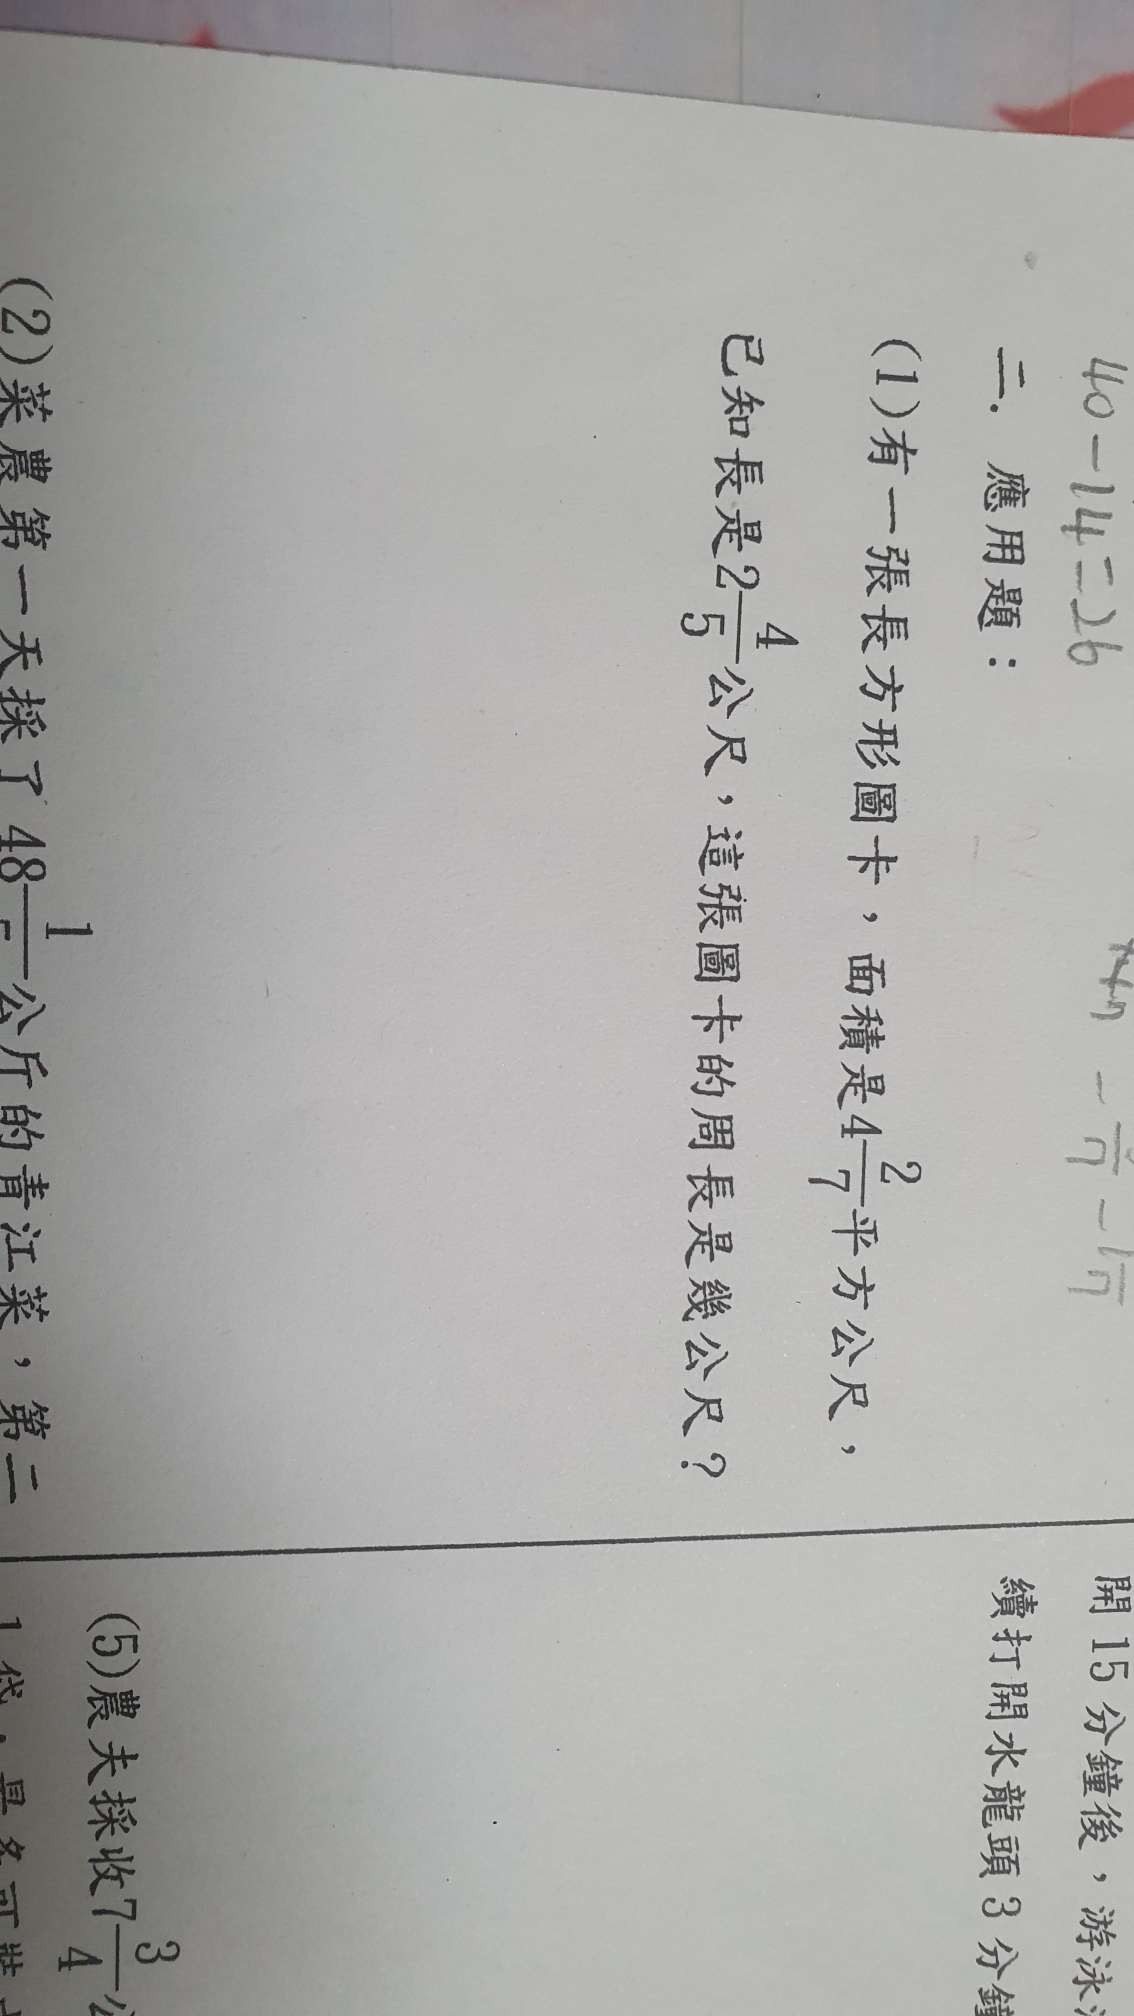 40-14=26
二. 應用題：
(1)有一張長方形圖卡，面積是4 2/7 平方公尺，
已知長是2 4/5 公尺，這張圖卡的周長是幾公尺？
(2)菜農第一天採了 48 1/ 公斤的青江菜，第二
開 15 分鐘後，游泳
續打開水龍頭 3 分鐘
(5)農夫採收7 3/4